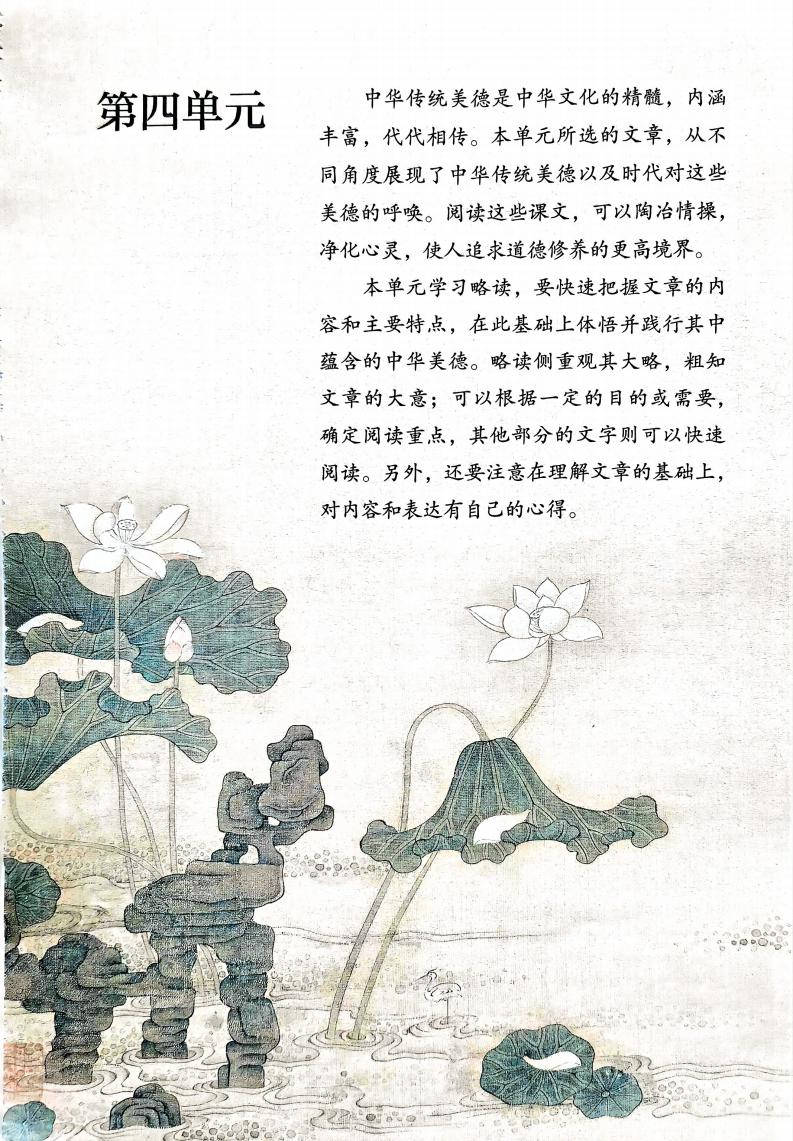 第四单元
中华传统美德是中华文化的精髓，内涵
丰富，代代相传。本单元所选的文章，从不
同角度展现了中华传统美德以及时代对这些
美德的呼唤。阅读这些课文，可以陶冶情操，
净化心灵，使人追求道德修养的更高境界。
本单元学习略读，要快速把握文章的内
容和主要特点，在此基础上体悟并践行其中
蕴含的中华美德。略读侧重观其大略，粗知
文章的大意；可以根据一定的目的或需要，
确定阅读重点，其他部分的文字则可以快速
阅读。另外，还要注意在理解文章的基础上，
对内容和表达有自己的心得。